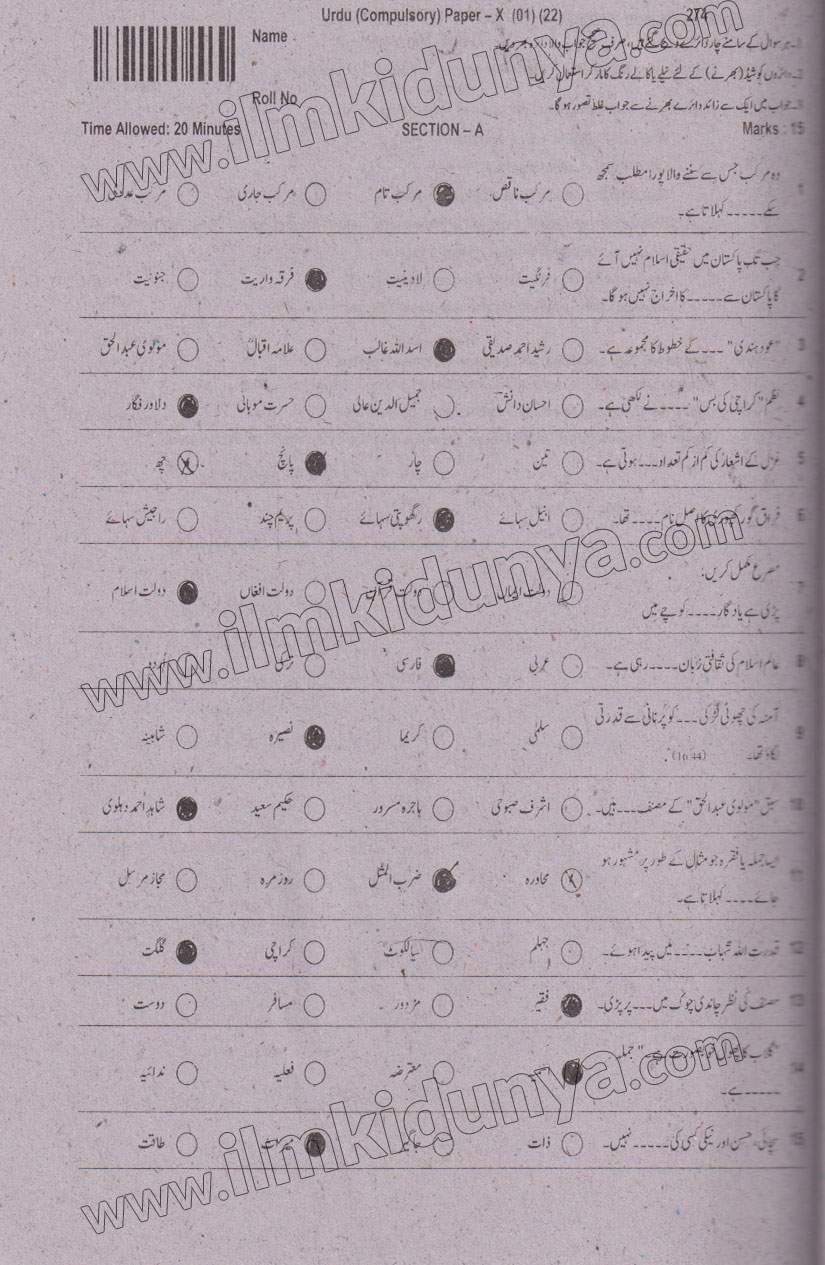 Urdu (Compulsory) Paper – X (01) (22) 274
Name
1۔ہر سوال کے سامنے چار دائرے دیئے گئے ہیں، صرف صحیح جواب والا دائرہ بھر دیں۔
2۔دائروں کو شیڈ (بھرنے) کے لئے نیلے یا کالے رنگ کا مارکر استعمال کریں۔
Roll No
3۔جواب میں ایک سے زائد دائرے بھرنے سے جواب غلط تصور ہو گا۔
Time Allowed: 20 Minutes SECTION – A Marks : 15
1 وہ مرکب جس سے سننے والا پورا مطلب سمجھ
سکے۔۔۔۔۔ کہلاتا ہے۔ مرکب ناقص مرکب تام مرکب جاری مرکب
2 جب تک پاکستان میں حقیقی اسلام نہیں آئے
گا پاکستان سے۔۔۔۔۔ کا اخراج نہیں ہو گا۔ فرنگیت لادینیت فرقہ واریت جنونیت
3 "عود ہندی" ۔۔۔ کے خطوط کا مجموعہ ہے۔ رشید احمد صدیقی اسد اللہ غالب علامہ اقبالؒ مولوی عبد الحق
4 نظم "کراچی کی بس" ۔۔۔۔ نے لکھی ہے۔ احسان دانش جمیل الدین عالی حسرت موہانی دلاور فگار
5 غزل کے اشعار کی کم از کم تعداد۔۔۔ ہوتی ہے۔ تین چار پانچ چھ
6 فراق گورکھپوری کا اصل نام ۔۔۔۔ تھا۔ انیل سہائے رگھوپتی سہائے پریم چند راجیش سہائے
7 مصرع مکمل کریں:
پڑی ہے یاد گار۔۔۔۔ کوچے میں دولت دولت دولت افغاں دولت اسلام
8 عالم اسلام کی ثقافتی زبان۔۔۔۔ رہی ہے۔ عربی فارسی ترکی اردو
9 آمنہ کی چھوٹی لڑکی ۔۔۔ کو پرنانی سے قدرتی
لگاؤ تھا۔ (16:44) سلمیٰ کریما نصیرہ شاہینہ
10 سبق "مولوی عبد الحق" کے مصنف۔۔۔ ہیں۔ اشرف صبوحی ہاجرہ مسرور حکیم سعید شاہد احمد دہلوی
11 ایسا جملہ یا فقرہ جو مثال کے طور پر مشہور ہو
جائے۔۔۔۔ کہلاتا ہے۔ محاورہ ضرب المثل روزمرہ مجاز مرسل
12 قدرت اللہ شہاب۔۔۔۔ میں پیدا ہوئے۔ جہلم سیالکوٹ کراچی گلگت
13 مصنف کی نظر چاندی چوک میں۔۔۔ پر پڑی۔ فقیر مزدور مسافر دوست
14 "گلاب کا پھول خوبصورت ہے۔" جملہ
۔۔۔۔۔ ہے۔ معترضہ فعلیہ ندائیہ
15 سچائی، حسن اور نیکی کسی کی ۔۔۔۔۔ نہیں۔ ذات جاگیر میراث طاقت
www.ilmkidunya.com
www.ilmkidunya.com
www.ilmkidunya.com